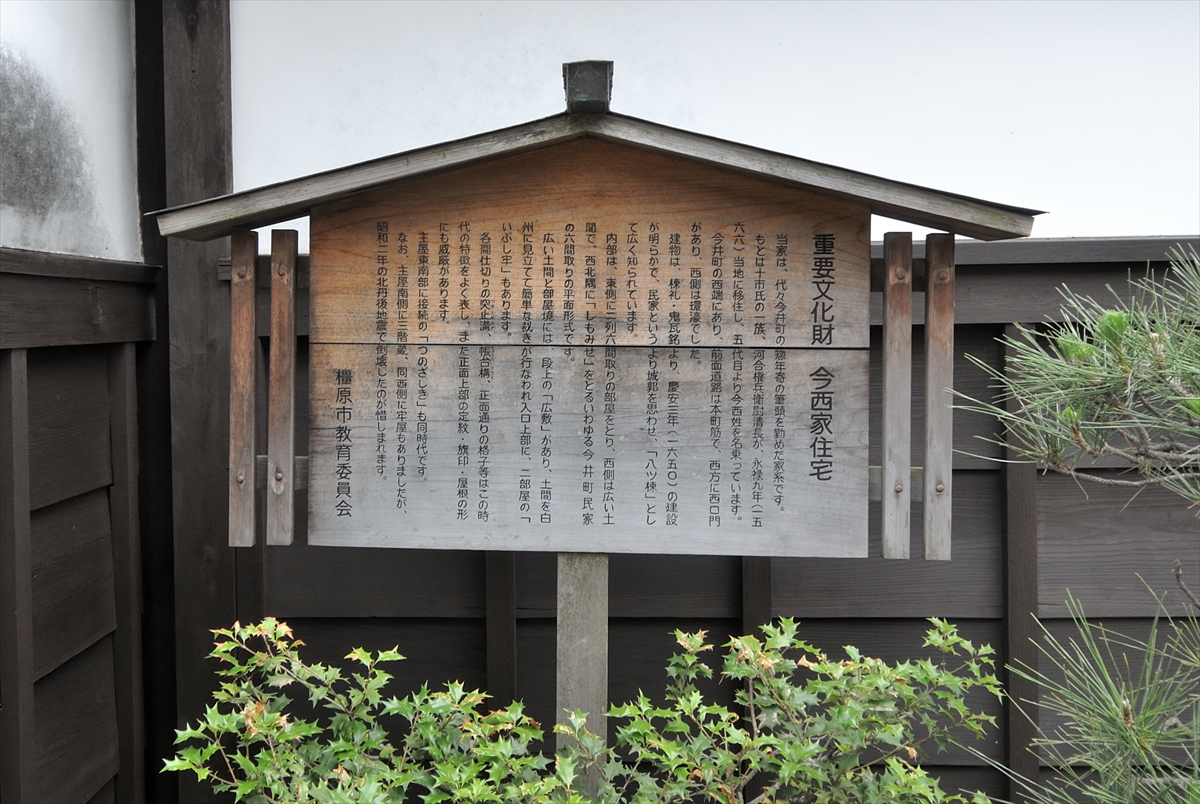 重要文化財 今西家住宅
当家は、代々今井町の惣年寄の筆頭を勤めた家系です。
もとは十市氏の一族、河合権兵衛尉清長が、永禄九年(一五
六六)当地に移住し、五代目より今西姓を名乗っています。
今井町の西端にあり、前面道路は本町筋で、西方に西口門
があり、西側は環濠でした。
建物は、棟札・鬼瓦銘より、慶安三年(一六五〇)の建設
が明らかで、民家というより城郭を思わせ、「八ツ棟」とし
て広く知られています。
内部は、東側に二列六間取りの部屋をとり、西側は広い土
間で、西北隅に「しもみせ」をとるいわゆる今井町民家
の六間取りの平面形式です。
広い土間と部屋境には、段上の「広敷」があり、土間を白
州に見立てて簡単な裁きが行なわれ入口上部に、二部屋の「
いぶし牢」もあります。
各間仕切りの突止溝、帳台構、正面通りの格子等はこの時
代の特徴をよく表し、また正面上部の定紋・旗印・屋根の形
にも威厳があります。
主屋東南部に接続の「つのざしき」も同時代です。
なお、主屋南側に三階蔵、同西側に牢屋もありましたが、
昭和二年の北丹後地震で倒壊したのが惜しまれます。
橿原市教育委員会